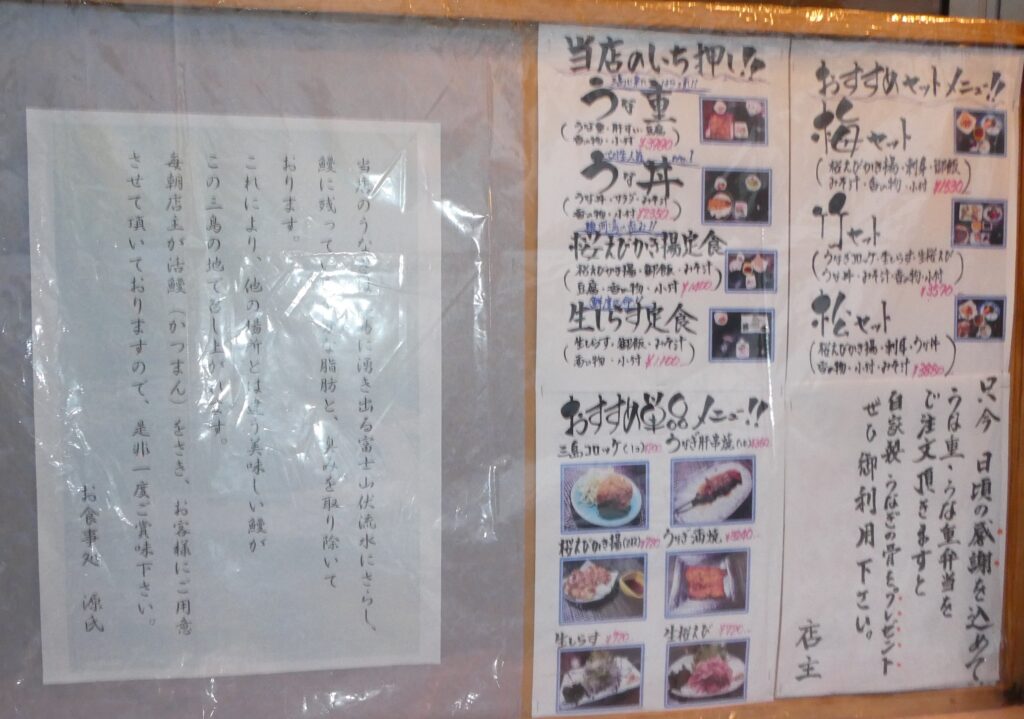 当店のうなぎは に湧き出る富士山伏流水にさらし、
鰻に残って 脂肪と、臭みを取り除いて
おります。
これにより、他の場所とは違う美味しい鰻が
この三島の地でどし上がります。
毎朝店主が活鰻(かつまん)をさき、お客様にご用意
させて頂いておりますので、是非一度ご賞味下さい。
お食事処 源氏
当店のいち押し!!
うな重
(うな重・肝すい・豆腐
香の物・小付)
女性人気 no.1
うな丼
(うな丼・サラダ・みそ汁
香の物・小付 ¥2350)
桜えびかき揚定食
(桜えびかき揚・御飯・みそ汁
豆腐・香の物・小付 ¥1400)
生しらす定食
(生しらす・御飯・みそ汁
香の物・小付 ¥1100)
おすすめ単品メニュー!!
三島コロッケ(1コ)
うなぎ肝串焼
桜えびかき揚
うなぎ蒲焼
生しらす
生桜えび
おすすめセットメニュー!!
梅セット
(桜えびかき揚・刺身・御飯
みそ汁・香の物・小付 ¥1530)
竹セット
(うなぎコロッケ・生しらす・生桜えび
うな丼・みそ汁・香の物・小付)
¥3570
松セット
(桜えびかき揚・刺身・うな丼
香の物・小付・みそ汁)
只今 日頃の感謝を込めて
うな重・うな重弁当を
ご注文頂きますと
自家製・うなぎの骨をプレゼント
ぜひ御利用下さい。
店主